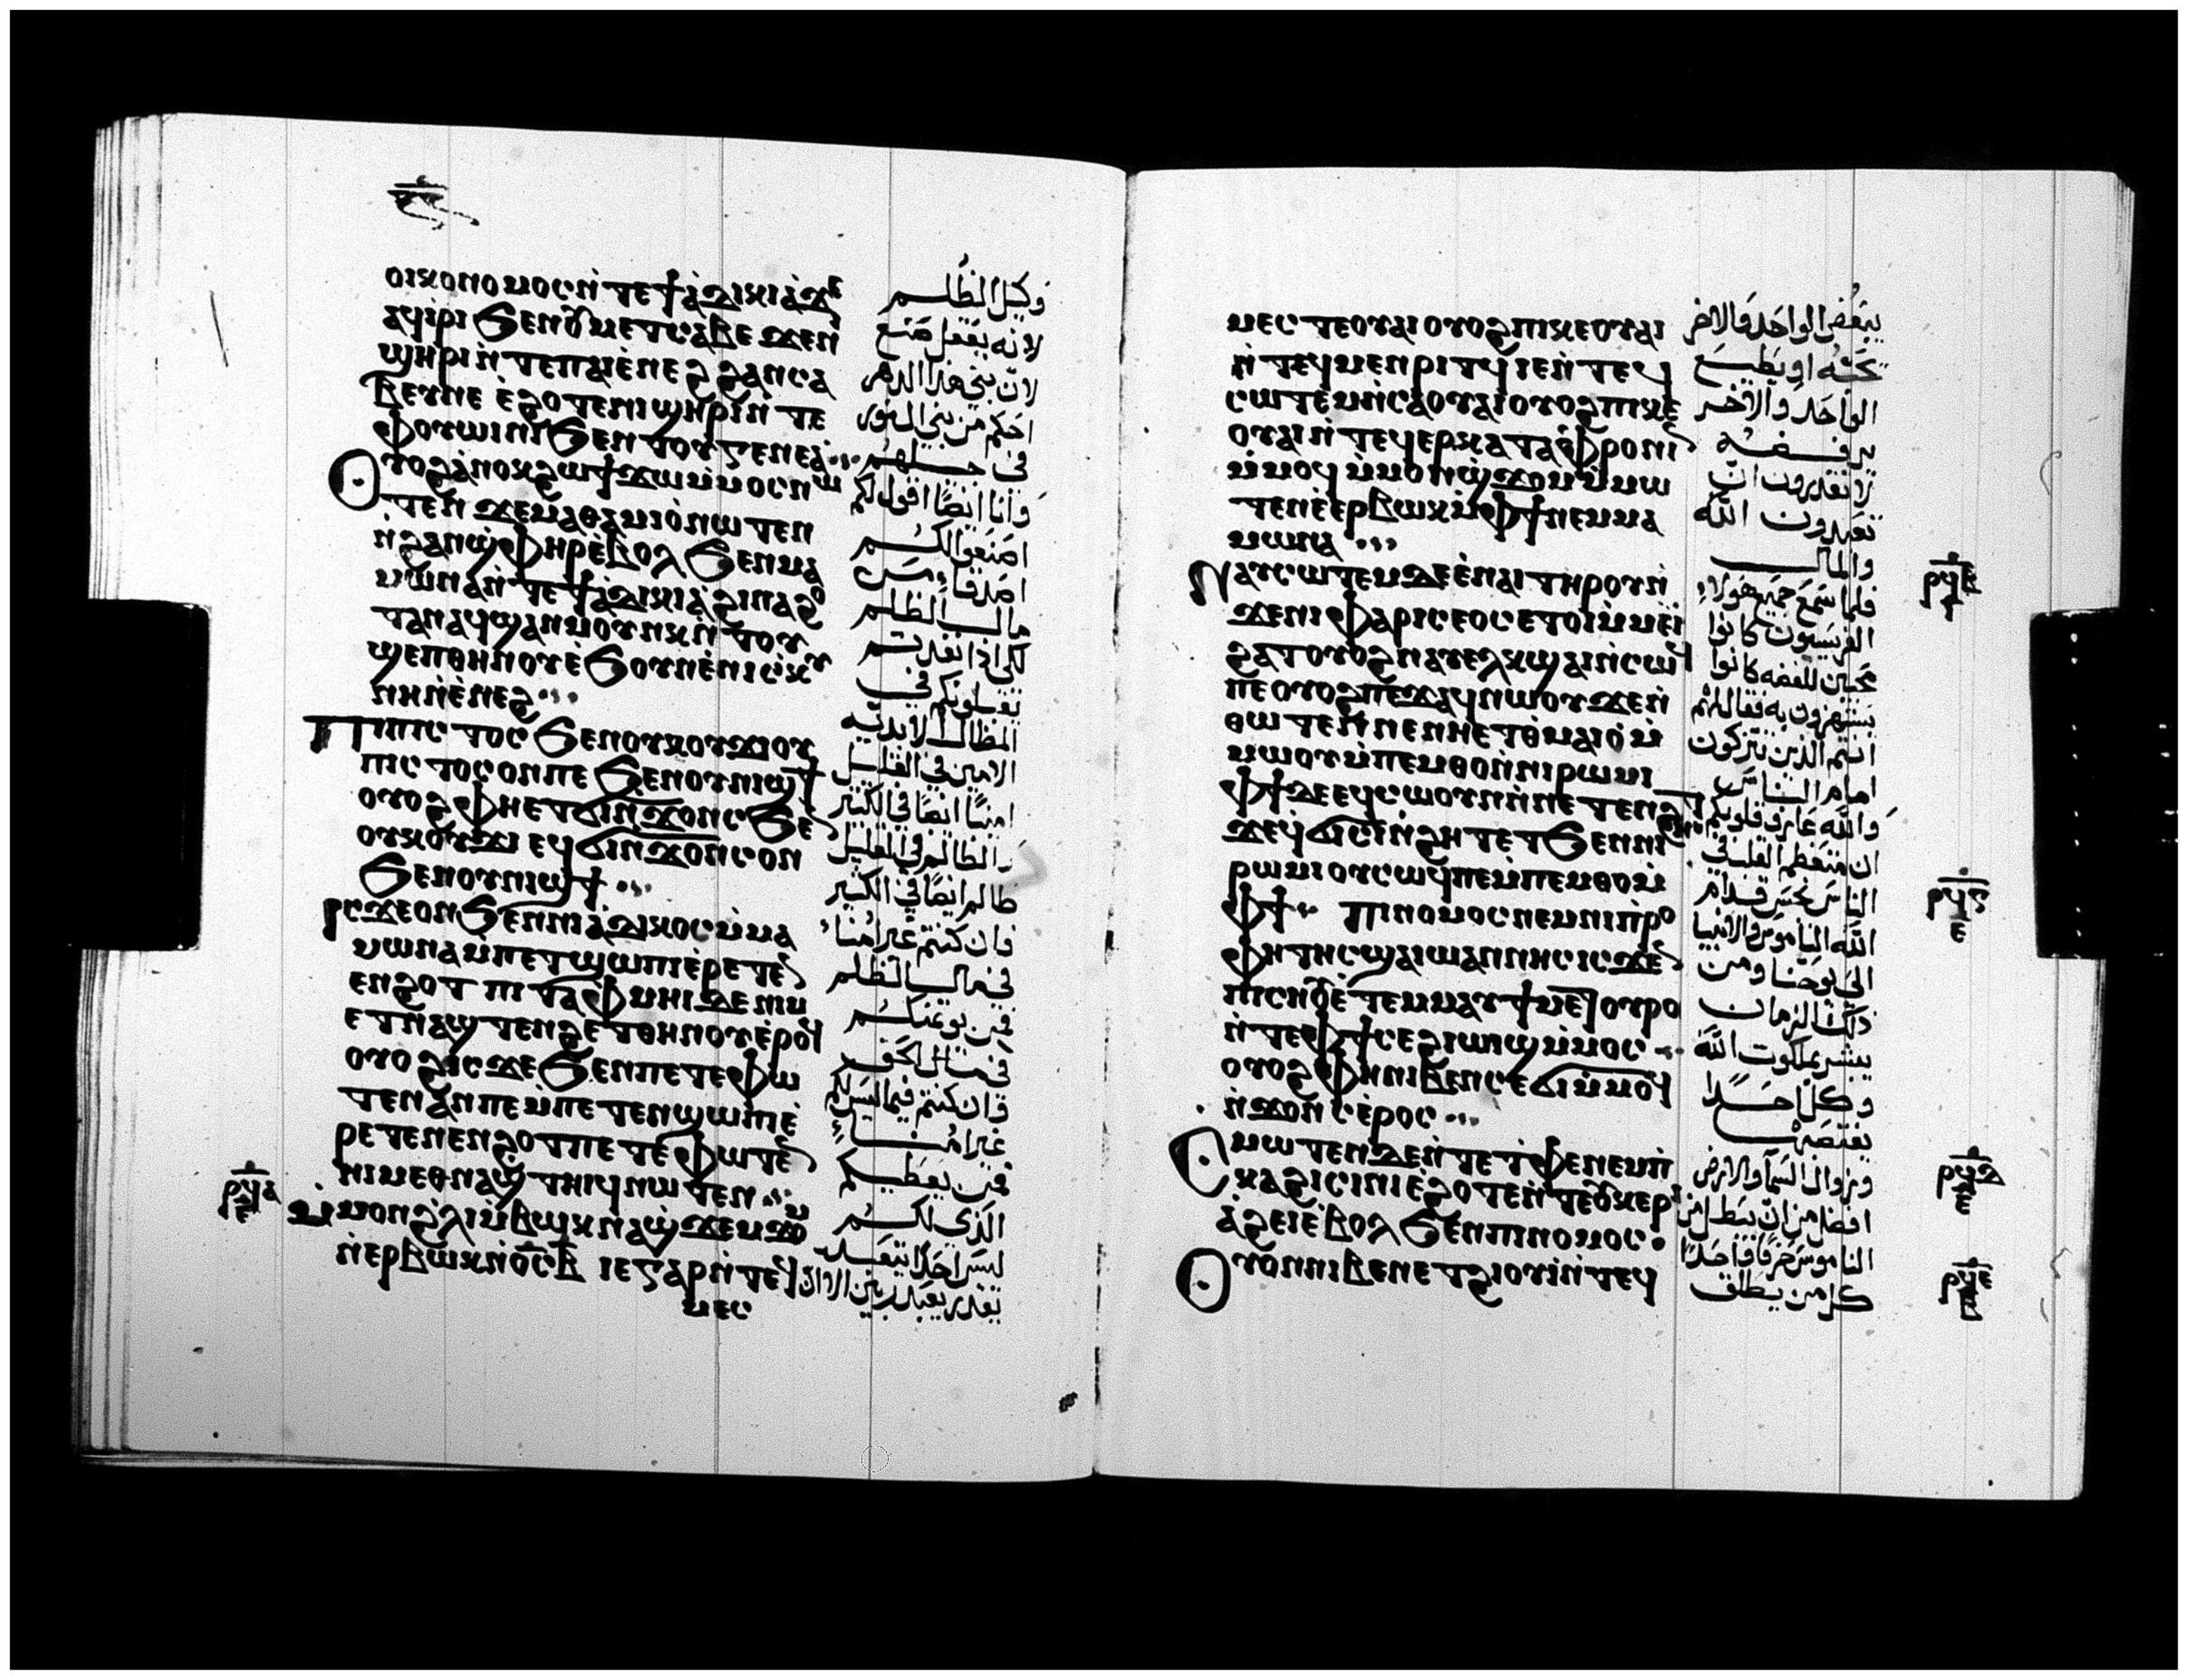 ⲟⲓⲕⲟⲛⲟⲙⲟⲥ ⲛ̇ⲧⲉϯⲁ̇ⲇⲓⲕⲓⲁ̇ ϫⲉ
ⲁϥⲓ̇ⲣⲓ ϧⲉⲛⲟⲩⲙⲉⲧⲥⲁⲃⲉ ϫⲉⲛⲓ
ϣⲏⲣⲓ ⲛ̇ⲧⲉⲡⲁⲓⲉ̇ⲛⲉϩ ϩⲁⲛⲥⲁ
ⲃⲉⲩⲛⲉ ⲉ̇ϩⲟⲧⲉⲛⲓϣⲏⲣⲓ ⲛ̇ⲧⲉ
ⲫⲟⲩⲱⲓⲛⲓ ϧⲉⲛ ⲧⲟⲩⲅⲉⲛⲉⲁ̇
ⲟⲩⲟϩ ⲁ̇ⲛⲟⲕ ϩⲱ ϯϫⲱ ⲙ̇ⲙⲟⲥ ⲛⲱ
ⲧⲉⲛ ϫⲉ ⲙⲁⲑⲁⲙⲓⲟ̇ ⲛⲱⲧⲉⲛ
ⲛ̇ϩⲁⲛϣ̇ⲫⲏⲣ ⲉ̇ⲃⲟⲗ ϧⲉⲛ ⲙⲁ
ⲙⲱⲛⲁ ⲛ̇ⲧⲉϯⲁ̇ⲇⲓⲕⲓⲁ̇ ϩⲓⲛⲁ ϩⲟ
ⲧⲁⲛ ⲁϥϣⲁⲛⲙⲟⲩⲛⲕ ⲛ̇ⲧⲟⲩ
ϣⲉⲡⲑⲏⲛⲟⲩ ⲉ̇ϧⲟⲩⲛ ⲉ̇ⲛⲓⲥ̇ⲕⲩ
ⲛⲏ ⲛ̇ⲉ̇ⲛⲉϩ
ⲡⲓⲡⲓⲥⲧⲟⲥ ϧⲉⲛ ⲟⲩⲕⲟⲩϫⲓ ⲟⲩ
ⲡⲓⲥⲧⲟⲥ ⲟⲛ ⲡⲉ ϧⲉⲛ ⲟⲩⲛⲓϣϯ
ⲟⲩⲟϩ ⲫⲏ ⲉⲧϭⲓⲛ̇ϫⲟⲛⲥ ϧⲉⲛ
ⲟⲩⲕⲟⲩϫⲓ ⲉϥϭⲓⲛ̇ϫⲟⲛⲥ ⲟⲛ
ϧⲉⲛ ⲟⲩⲛⲓϣϯ
ⲓⲥϫⲉ ⲟⲛ ϧⲉⲛ ⲡⲓⲁ̇ⲇⲓⲕⲟⲥ ⲙ̇ⲙⲁ
ⲙⲱⲛⲁ ⲙ̇ⲡⲉⲧⲉⲛϣⲱⲡⲓ ⲉ̇ⲣⲉⲧⲉⲛ
ⲉⲛϩⲟⲧ ⲡⲓⲧⲁⲫⲙⲏⲓ ϫⲉ ⲛⲓⲙ
ⲉⲧⲛⲁϣⲧⲉⲛϩⲉⲧⲑⲏⲛⲟⲩ ⲉ̇ⲣⲟϥ
ⲟⲩⲟϩ ⲓⲥϫⲉ ϧⲉⲛ ⲡⲉⲧⲉⲫⲱ
ⲧⲉⲛ ⲁⲛ ⲡⲉ ⲙ̇ⲡⲉⲧⲉⲛϣⲱⲡⲓ ⲉ̇
ⲣⲉⲧⲉⲛⲉⲛϩⲟⲧ ⲡⲉⲧⲉⲫⲱⲧⲉⲛ
ⲛⲓⲙ ⲉⲑⲛⲁϣ̇ⲧⲏⲓϥ ⲛⲱⲧⲉⲛ
ⲙ̇ⲙⲟⲛ ϩ̇ⲗⲓ ⲙ̇ⲃⲱⲕ ⲛⲁϣ̇ϫⲉⲙϫⲟⲙ
ⲛ̇ⲉⲣⲃⲱⲕ ⲛ̇ⲟ̅ⲥ̅ ⲃ̅ ⲓⲉ ⲅⲁⲣ ⲛ̇ⲧⲉϥ
ⲙⲉⲥ
ⲣϥⲇ
ⲉ
وكيل الظلم
لانه بفعل صنع
لان بني هذا الدهر
احكم من بني النور
في جيلهم
وانا ايضًا اقول لكم
اصنعوا لكم
اصدقاء من
مال الظلم
لكي اذا نفدتم
تقبلونكم في
المظال الابدية
الامين في القليل
امينًا ايضًا في الكثير
والظالم في القليل
ظالم ايضًا في الكثير
فان كنتم غير امنا
في مال الظلم
فمن يومنكم
في مال الحق
وان كنتم فيما ليس لكم
غير امناء
فمن يعطيكم
الذي لكم
ليس احدًا بعبد
يقدر يعبد ربين
ⲙⲉⲥⲧⲉ ⲟⲩⲁⲓ ⲟⲩⲟϩ ⲡⲓⲕⲉⲟⲩⲁⲓ
ⲛ̇ⲧⲉϥⲙⲉⲛⲣⲓⲧϥ ⲓⲉ ⲛ̇ⲧⲉϥ
ⲥⲱⲧⲉⲙ ⲛ̇ⲥⲁ ⲟⲩⲁⲓ ⲟⲩⲟϩ ⲡⲓⲕⲉ
ⲟⲩⲁⲓ ⲛ̇ⲧⲉϥⲉⲣⲕⲁⲧⲁⲫⲣⲟⲛⲓⲛ
ⲙ̇ⲙⲟϥ ⲙ̇ⲙⲟⲛ ϣ̇ϫⲟⲙ ⲙ̇ⲙⲱ
ⲧⲉⲛ ⲉ̇ⲉⲣⲃⲱⲕ ⲙ̇ⲫϯ ⲛⲉⲙ ⲙⲁ
ⲙⲱⲛⲁ
ⲛⲁⲩⲥⲱⲧⲉⲙ ⲇⲉ ⲉ̇ⲛⲁⲓ ⲧⲏⲣⲟⲩ ⲛ̇
ϫⲉⲛⲓⲫⲁⲣⲓⲥⲉⲟⲥ ⲉⲧⲟⲓ ⲙ̇ⲙⲁⲓ
ϩⲁⲧ ⲟⲩⲟϩ ⲛⲁⲩⲉⲗⲕϣⲁⲓ ⲛ̇ⲥⲱϥ
ⲡⲉ ⲟⲩⲟϩ ⲡⲉϫⲁϥ ⲛⲱⲟⲩ ϫⲉ ⲛ̇
ⲑⲱⲧⲉⲛ ⲡⲉ ⲛⲏ ⲉⲧⲑⲙⲁⲓⲟ̇ ⲙ̇
ⲙⲱⲟⲩ ⲙ̇ⲡⲉⲙⲑⲟ ⲛ̇ⲛⲓⲣⲱⲙⲓ
ⲫϯ ⲇⲉ ϥ̇ⲥⲱⲟⲩⲛ ⲛ̇ⲛⲉⲧⲉⲛϩⲏⲧ
ϫⲉ ϥ̇ϭⲓⲥⲓ ⲛ̇ϩⲏⲧ ⲉⲧϧⲉⲛ ⲛⲓ
ⲣⲱⲙⲓ ⲟⲩⲥⲱϥ ⲡⲉ ⲙ̇ⲡⲉⲙⲑⲟ ⲙ̇
ⲫϯ ⲡⲓⲛⲟⲙⲟⲥ ⲛⲉⲙ ⲛⲓⲡ̇ⲣⲟ
ⲫⲏⲧⲏⲥ ϣⲁ ⲓⲱⲁⲛⲛⲏⲥ ⲓⲥϫⲉⲛ
ⲡⲓⲥⲏⲟⲩ ⲉ̇ⲧⲉⲙⲙⲁⲩ ϯⲙⲉⲧⲟⲩⲣⲟ
ⲛ̇ⲧⲉⲫϯ ⲥⲉϩⲓⲱⲓϣ ⲙ̇ⲙⲟⲥ
ⲟⲩⲟϩ ⲫⲏ ⲛⲓⲃⲉⲛ ⲥⲉϭⲓ ⲙ̇ⲙⲟϥ
ⲛ̇ϫⲟⲛⲥ ⲉ̇ⲣⲟⲥ
ⲥⲙⲟⲧⲉⲛ ⲇⲉ ⲛ̇ⲧⲉⲧ̇ⲫⲉ ⲛⲉⲙ ⲡ̇
ⲕⲁϩⲓ ⲥⲓⲛⲓ ⲉ̇ϩⲟⲧⲉ ⲛ̇ⲧⲉⲟⲩⲕⲉⲣⲉⲁ
ⲁ̇ϩⲉⲓ ⲉ̇ⲃⲟⲗ ϧⲉⲛ ⲡⲓⲛⲟⲙⲟⲥ
ⲟⲩⲟⲛ ⲛⲓⲃⲉⲛ ⲉⲧϩⲓⲟⲩⲓ̇ ⲛ̇ⲧⲉϥ
يبغض الواحد والاخر
يحبه او يطيع
الواحد والاخر
يرفضه
لا تقدرون ان
تعبدون الله
والمال
فلما سمع جميع هولاء
الفريسيون كانوا
محبين للفضه كانوا
يستهزون به فقال لهم
انتم الذين تتزكون
امام الناس
والله عارف قلوبكم
ان متعظم القلب في
الناس نجس قدام
الله الناموس والانبيا
الى يوحنا ومن
ذلك الزمان
يبشر بملكوت الله
وكل احدًا
يغتصبها
وزوال السما والارض
افضل من ان يبطل من
الناموس حرفًا واحدًا
كل من يطلق
ⲣϥⲋ
ⲉ